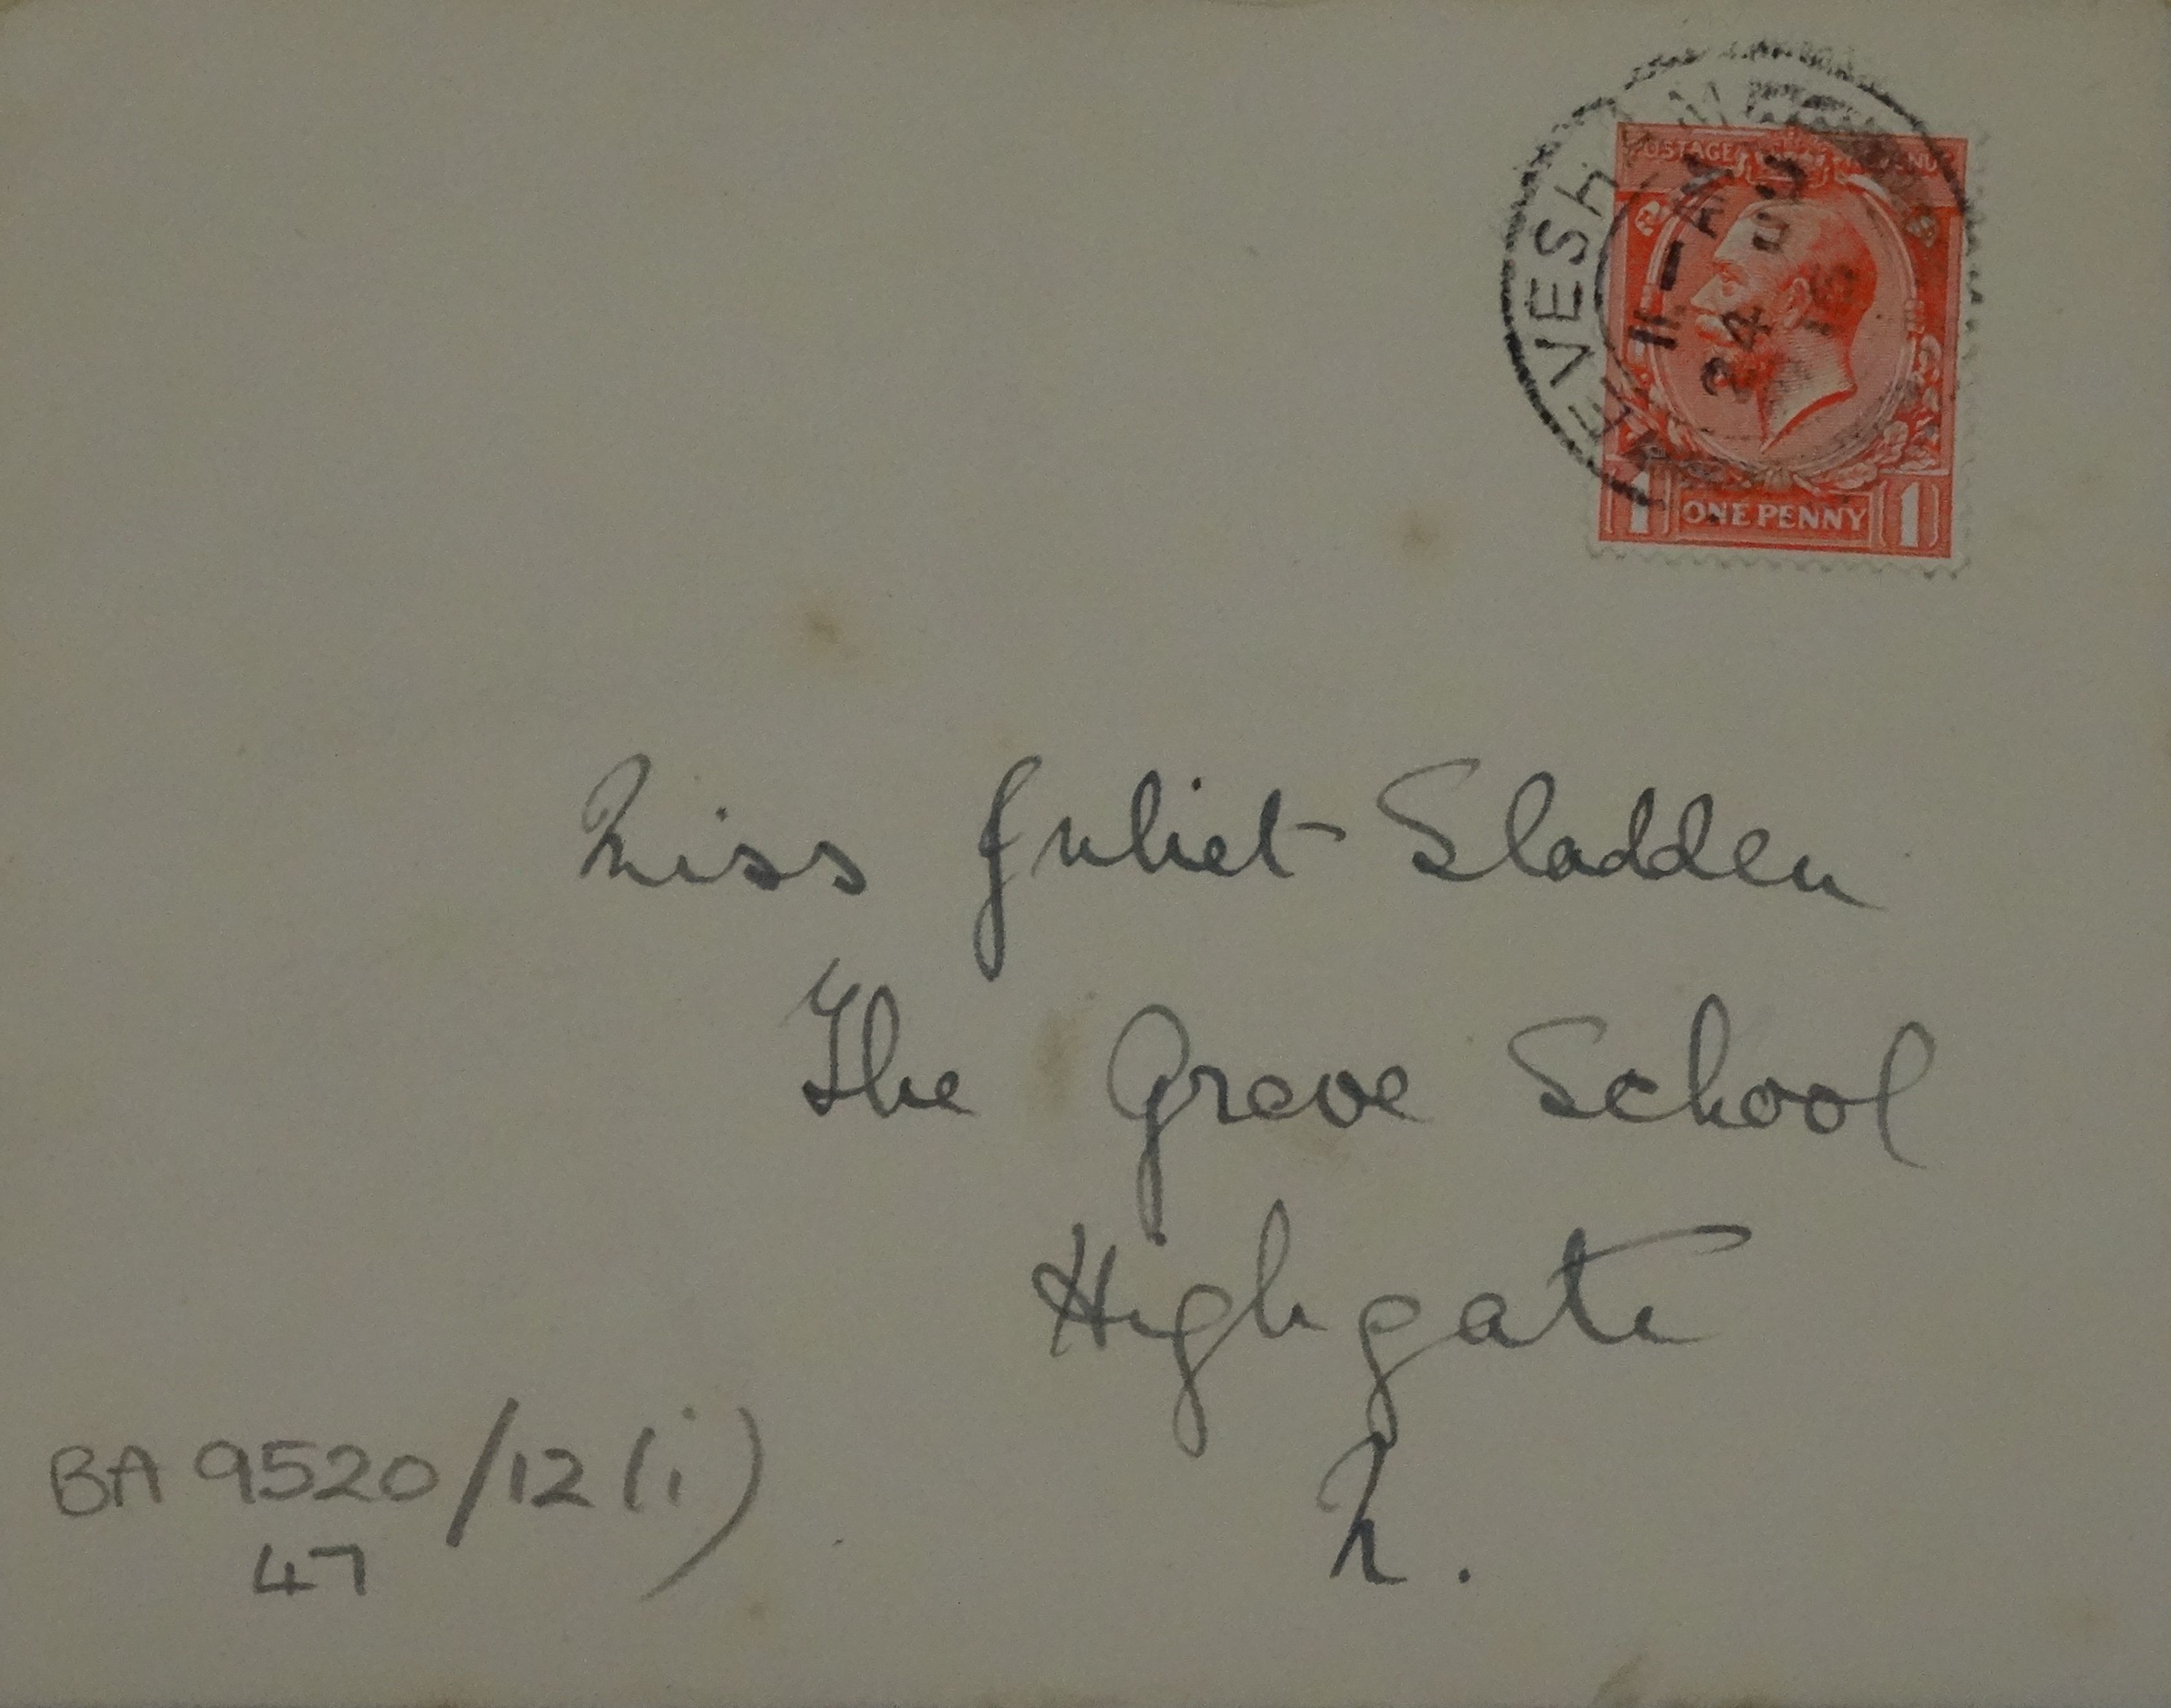 EVESHAM
11-AM
24
15
POSTAGE REVENUE
1 ONE PENNY 1
Miss Juliet Sladden
The Grove School
Highgate
N.
BA 9520/12(i)
47